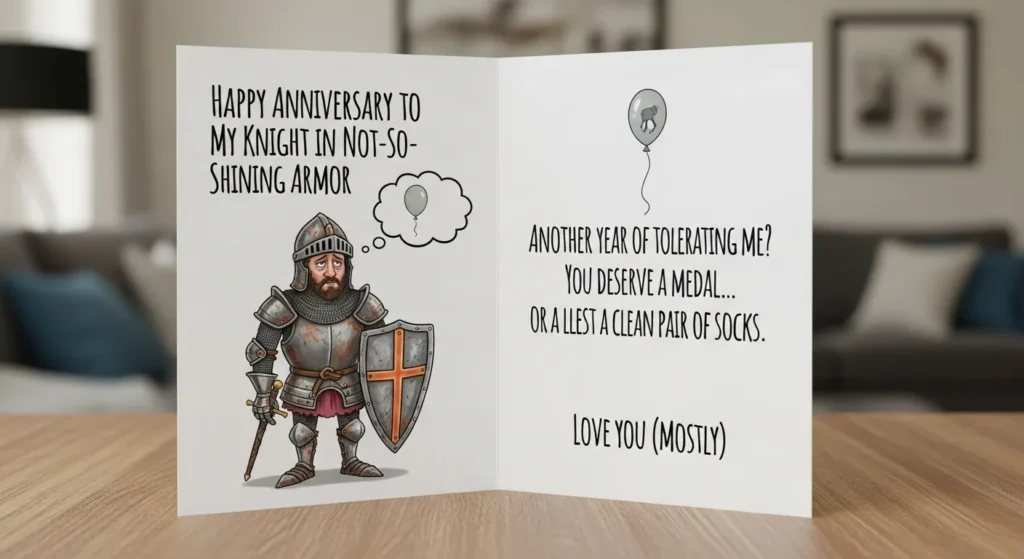 HAPPY ANNIVERSARY TO
MY KNIGHT IN NOT-SO-
SHINING ARMOR
ANOTHER YEAR OF TOLERATING ME?
YOU DESERVE A MEDAL...
OR A LLEST A CLEAN PAIR OF SOCKS.
LOVE YOU (MOSTLY)